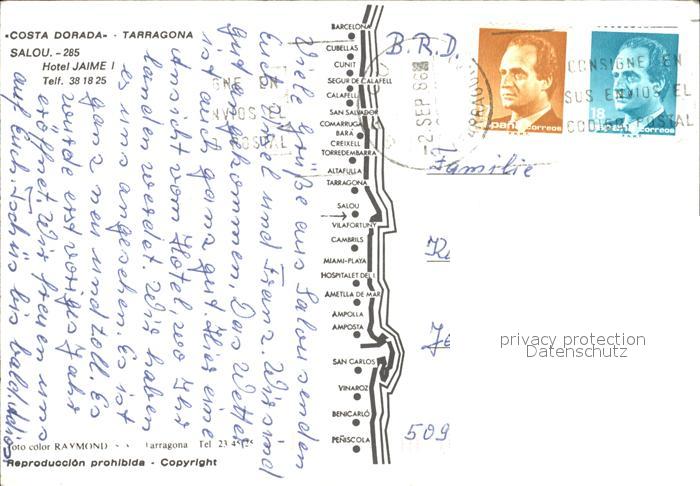 «COSTA DORADA» - TARRAGONA
SALOU. - 285
Hotel JAIME I
Telf. 38 18 25
Viele Grüße aus Salou senden
Euch und Franz. Wir sind
gut angekommen. Das Wetter
ist auch ganz gut. Hier eine
Ansicht vom Hotel, wo Ihr
landen werdet. Wir haben
es uns angesehen. Es ist
ganz neu und toll. Es
wurde erst voriges Jahr
eröffnet. Wir freuen uns
auf Euch. Tschüs bis bald. Adios
Foto color RAYMOND - - Tarragona Tel 23 45 25
Reproducción prohibida - Copyright
BARCELONA
CUBELLAS
CUNIT
SEGUR DE CALAFELL
CALAFELL
SAN SALVADOR
COMARRUGA
BARÁ
CREIXELL
TORREDEMBARRA
ALTAFULLA
TARRAGONA
SALOU
VILAFORTUNY
CAMBRILS
MIAMI-PLAYA
HOSPITALET DEL I.
AMETLLA DE MAR
AMPOLLA
AMPOSTA
SAN CARLOS
VINAROZ
BENICARLÓ
PEÑISCOLA
B.R.D.
-2 SEP 86
CONSIGNE EN
SUS ENVIOS EL
CODIGO POSTAL
España correos
18
España correos
Familie
509
privacy protection
Datenschutz